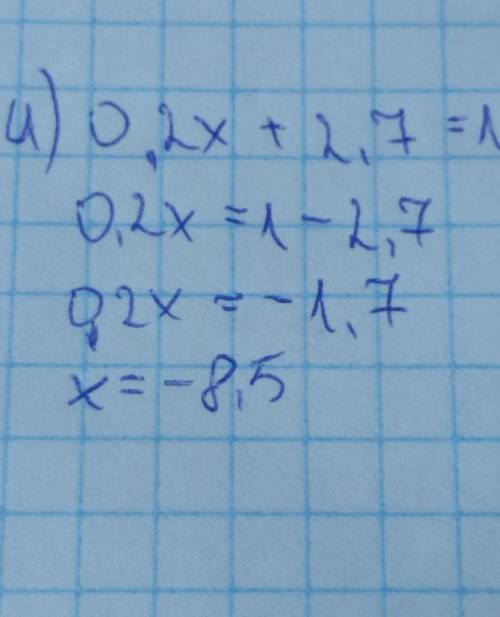 и) 0,2x + 2,7 = 1
0,2x = 1 - 2,7
0,2x = -1,7
x = -8,5